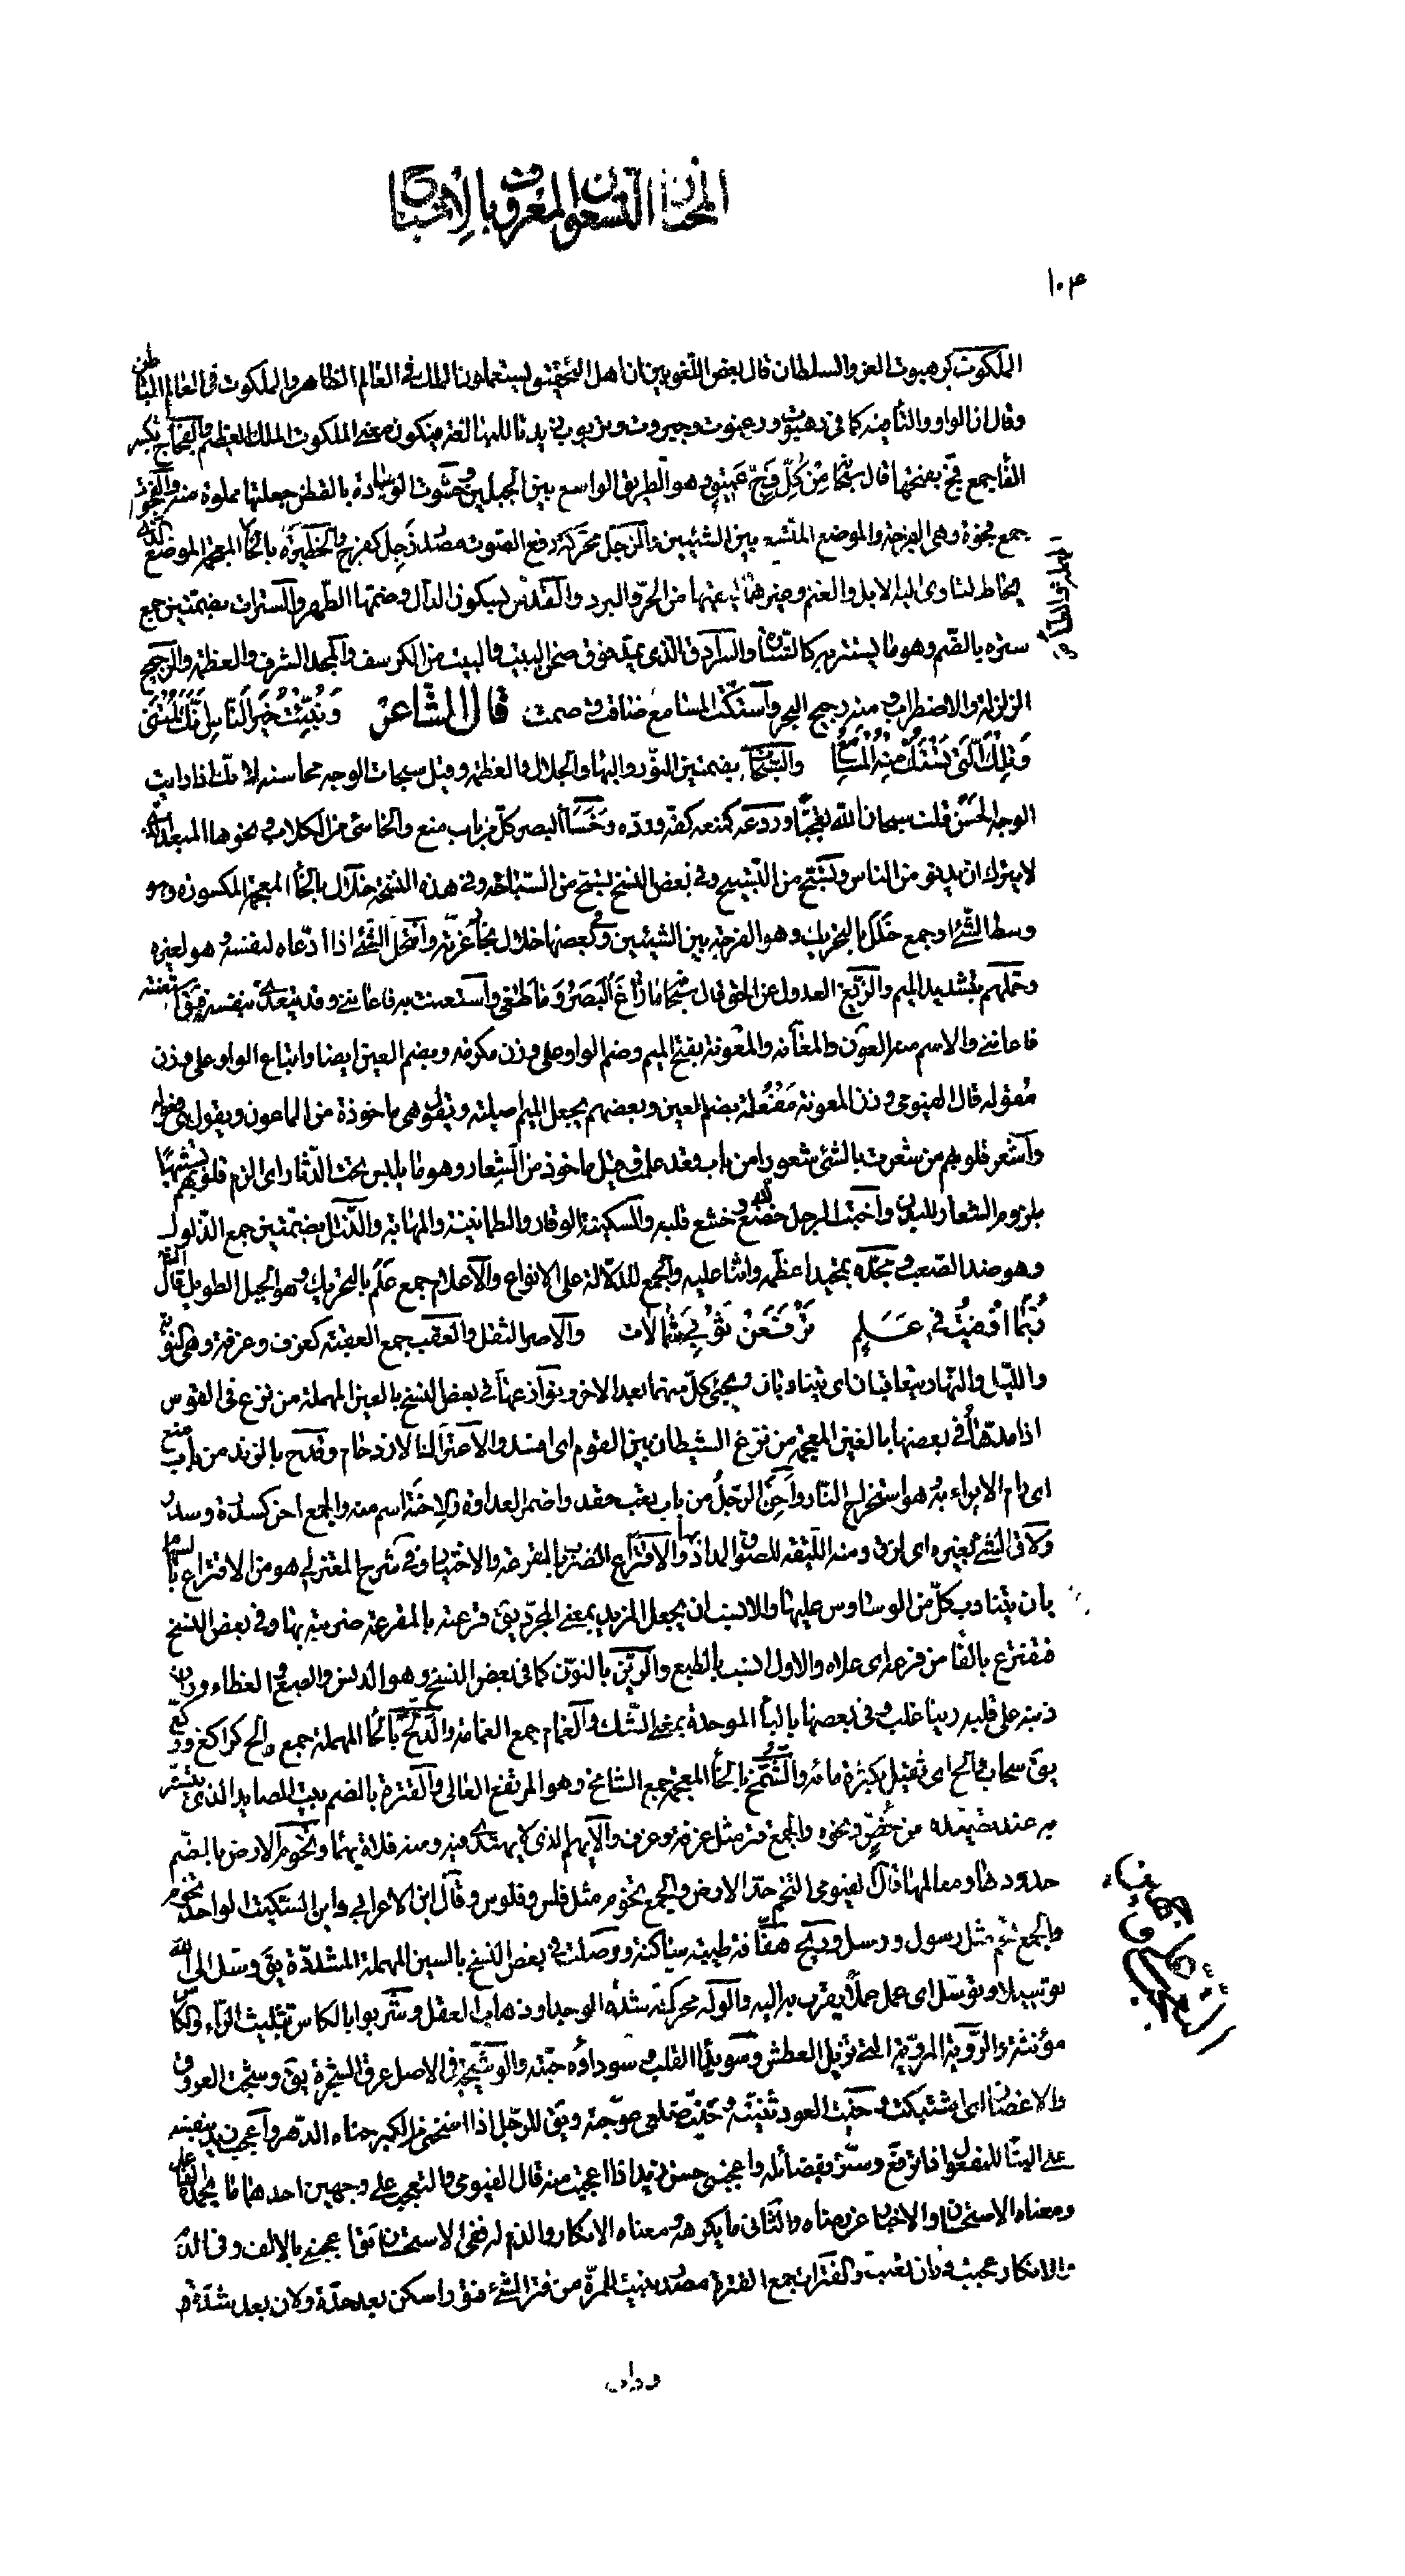 المختار التسعون المعروف بالاشباح
١٠۴
الملكوت كرهبوت العز والسلطان قال بعض اللغويين ان اهل التحقيق يستعملون الملك في العالم الظاهر والملكوت في العالم الباطن
وقال ان الواو والتاء فيه كما في رهبوت ورحموت وجبروت وتربوت زيدتا للمبالغة فيكون معنى الملكوت الملك العظيم والفجاج بكسر
الفاء جمع فجّ بفتحها قال سبحانه مِنْ كُلِّ فَجٍّ عَمِيقٍ وهو الطريق الواسع بين الجبلين وحشوت الوسادة بالقطن جعلتها مملوة منه والفجوات
جمع فجوة وهي الفرجة والموضع المتسع بين الشيئين والزجل محركة رفع الصوت مصدر زجل كفرح والحظيرة بالحاء المهملة والظاء المعجمة الموضع الذي
يحاط لتاوى اليه الابل والغنم وغيرهما ليقيها من الحرّ والبرد والقدس بسكون الدال وضمها الطهر والسترات بضمتين جمع
سترة بالضم وهو ما يستتر به كالستارة والسرادق الذي يمدّ فوق صحن البيت والبيت من الكرسف والمجد الشرف والعظمة والرجيج
الزلزلة والاضطراب ومنه رجيج البحر واستكّت المسامع ضاقت وصمت قال الشاعر وَنُبِّئْتُ خَيْرَ النَّاسِ اَنَّكَ لُمْتَنِى
وَتِلْكَ الَّتِي تَسْتَكُّ مِنْهَا الْمَسَامِعُ والسبحات بضمتين النور والبهاء والجلال والعظمة وقيل سبحات الوجه محاسنه لانك اذا رايت
الوجه الحسن قلت سبحان الله تعجبا وردعه كمنعه كفّه وردّه وخسأ البصر كلّ من باب منع والخاسئ من الكلاب ونحوها المبعد الذي
لا يترك ان يدنو من الناس وتسبّح من التسبيح وفي بعض النسخ تسبح من السباحة وفي هذه النسخة خلال بالخاء المعجمة المكسورة وهو
وسط الشئ او جمع خلل بالتحريك وهو الفرجة بين الشيئين وفي بعضها خلال بحار عزته وانتحل الشئ اذا ادّعاه لنفسه وهو لغيره
وحمّلهم بتشديد الميم والزيغ العدول عن الحق قال سبحانه مَا زَاغَ الْبَصَرُ وَمَا طَغَى واستعنت به فاعانني وقد يتعدى بنفسه فيقال استعنته
فاعانني والاسم منه العون والمعانة والمعونة بفتح الميم وضم الواو على وزن مكرمة وبضم العين ايضا واتباع الواو على وزن
مقولة قال الفيومي وزن المعونة مَفْعُلة بضم العين وبعضهم يجعل الميم اصلية ويقول هي ماخوذة من الماعون ويقول هي فعولة
واشعر قلوبهم من شعرت بالشئ شعورا من باب قعد علمت وقيل ماخوذ من الشعار وهو ما يلبس تحت الدثار اي الزم قلوبهم تشبيها
بلزوم الشعار للبدن واخبت الرجل خضع لله وخشع قلبه والسكينة الوقار والطمانينة والمهابة والذلل بضمتين جمع الذلول
وهو ضد الصعب ومجّده تمجيدا عظّمه واثنا عليه والجمع للدلالة على الانواع والاعلام جمع عَلَم بالتحريك وهو الجبل الطويل قال الشاعر
رُبَّمَا اَوْفَيْتُ في عَـلَـمٍ تَرْفَعَنْ ثَوْبِي شَمَالات والاصر الثقل والعقب جمع العقبة كغرف وغرفة وهي النوبة
والليل والنهار يتعاقبان اي يتناوبان ويجئ كلّ منهما بعد الاخر ونوازعها في بعض النسخ بالعين المهملة من نزع في القوس
اذا مدّها وفي بعضها بالغين المعجمة من نزغ الشيطان بين القوم اى افسد والاعتراك الازدحام وقدح بالزند من باب منع
اى رام الايراء به وهو استخراج النار واَحِنَ الرجلُ من باب تعب حقد واضمر العداوة والإحنة اسم منه والجمع احن كسدرة وسدر
ولاق الشئ بغيره اي لزق ومنه الليقة للصوق المداد بها والاقتراع الضرب بالقرعة والاختيار وفي شرح المعتزلي هو من الاقتراع بالسهام
بان يتناوب كلّ من الوساوس عليها والانسب ان يجعل المزيد بمعنى المجرد يق قرعته بالمقرعة ضربته بها وفي بعض النسخ
فتفترع بالفاء من فرعه اى علاه والاول انسب بالطبع والرين بالنون كما في بعض النسخ وهو الدنس والطبع والغطاء وران
ذنبه على قلبه رينا غلب وفي بعضها بالباء الموحدة بمعنى الشك والغمام جمع الغمامة والدّلّح بالحاء المهملة جمع دالح كراكع وركّع
يق سحاب دالح اى ثقيل بكثرة مائه والشمّخ بالخاء المعجمة جمع الشامخ وهو المرتفع العالي والقترة بالضم بيت الصايد الذى يتستر
به عند تصيده من خصّ ونحوه والجمع قتر مثل غرفة وغرف والايهم الذى لا يهتدى فيه ومنه فلاة يهماء وتخوم الارض بالضم
حدودها ومعالمها قال الفيومي التخم حدّ الارض والجمع تخوم مثل فلس وفلوس وقال ابن الاعرابي وابن السكيت الواحد تخوم
والجمع تخم مثل رسول ورسل وريح هفّافة طيبة ساكنة ووصلت في بعض النسخ بالسين المهملة المشددة يق وسّل الى الله
توسيلا وتوسّل اى عمل عملا يقرب به اليه والوله محركة شدة الوجد او ذهاب العقل وشربوا بالكاس بتثليث الراء والكاس
مؤنثة والرّوية المروية التي تزيل العطش وسويداء القلب وسوداؤه حبّته والوشيجة في الاصل عرق الشجرة يق وشجت العروق
والاغصان اى اشتبكت وحنيت العود ثنيته وحنيت ضلعي عوّجته ويق للرجل اذا انحنى من الكبر حناه الدهر واُعجب زيد بنفسه
على البناء للمفعول اذا ترفّع وسرّ بفضائله واعجبني حسن زيد اذا اعجبت منه قال الفيومي والتعجب على وجهين احدهما ما يحمده الفاعل
ومعناه الاستحسان والاخبار عن رضاه والثاني ما يكرهه ومعناه الانكار والذم له ففي الاستحسان يقال اعجبني بالالف وفي الذم
والانكار عجبت وزان تعبت والفترات جمع الفترة مصدر بنيت للمرّة من فتر الشئ فتورا سكن بعد حدّة ولان بعد شدّة